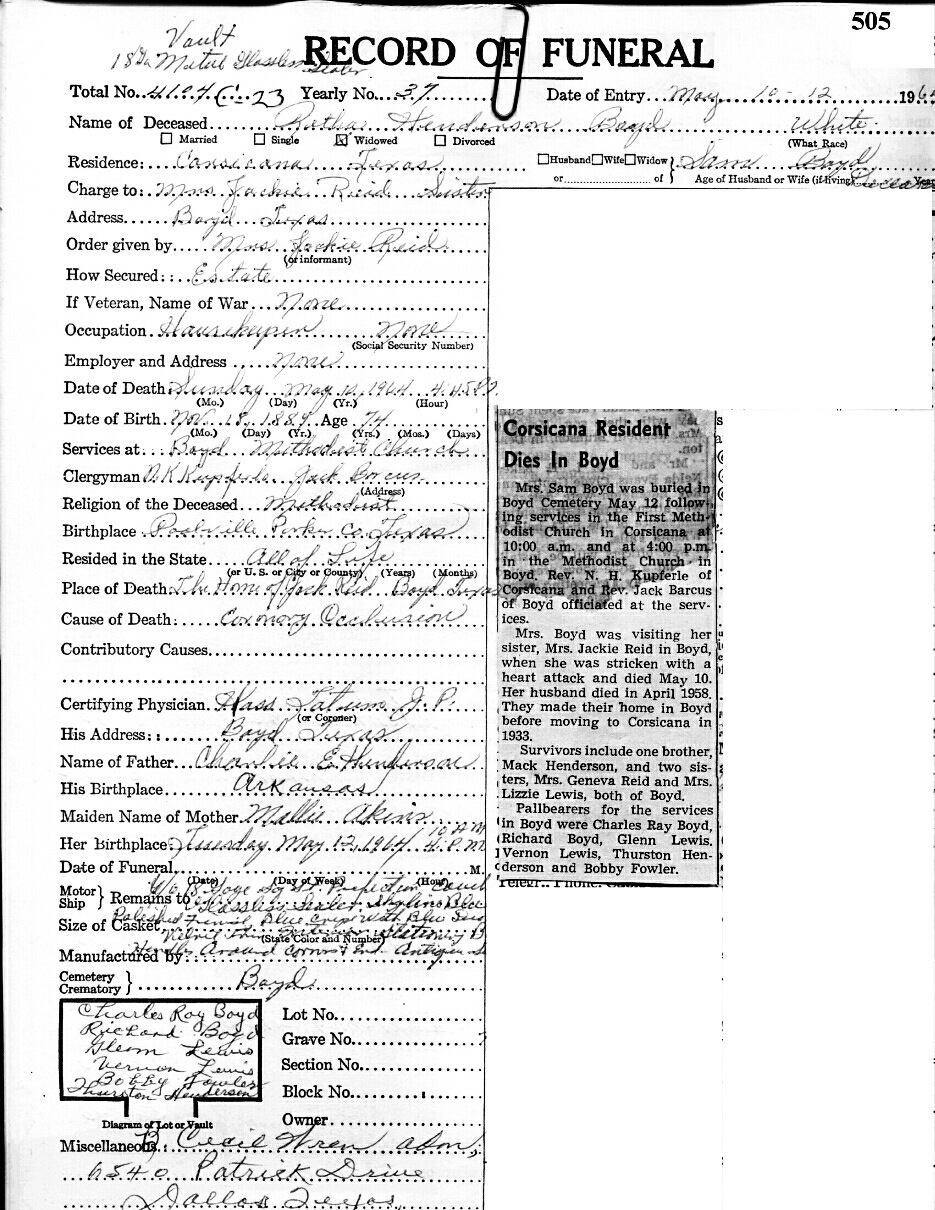 505
Vault
18 Ga Metal Glassless Sealer
RECORD OF FUNERAL
Total No. 4194 C. 23 Yearly No. 37 Date of Entry May 10-12 196
Name of Deceased Henderson Boyd White
Married Single Widowed Divorced (What Race)
Residence: Corsicana Texas Husband Wife Widow Sam Boyd
or of Age of Husband or Wife (if living) Years
Charge to: Mrs. Jackie Reid Sister
Address Boyd Texas
Order given by Mrs Jackie Reid
(or informant)
How Secured: Estate
If Veteran, Name of War None
Occupation Housekeeper None
(Social Security Number)
Employer and Address None
Date of Death Sunday May 10, 1964 4:45
(Mo.) (Day) (Yr.) (Hour)
Date of Birth Nov. 18, 1889 Age 74
(Mo.) (Day) (Yr.) (Yrs.) (Mos.) (Days)
Services at: Boyd Methodist Church
Clergyman Kupferle Jack Barcus
(Address)
Religion of the Deceased Methodist
Birthplace Poolville Parker Co. Texas
Resided in the State All of Life
(or U. S. or City or County) (Years) (Months)
Place of Death The Home of Jack Reid Boyd Texas
Cause of Death: Coronary Occlusion
Contributory Causes
Certifying Physician Hass Tatum J. P.
(or Coroner)
His Address: Boyd Texas
Name of Father Charlie E Henderson
His Birthplace Arkansas
Maiden Name of Mother Mollie Akins
10 AM
Her Birthplace Tuesday, May 12, 1964 4. P.M
Date of Funeral M
(Date) (Day of Week) (Hour)
Motor
Ship
Remains to Glassless Sealer
Size of Casket
(State Color and Number)
Manufactured by:
Cemetery
Crematory
Boyd
Charles Ray Boyd
Richard Boyd
Glenn Lewis
Vernon Lewis
Bobby Fowler
Thurston Henderson
Diagram of Lot or Vault
Lot No.
Grave No.
Section No.
Block No.
Owner
Miscellaneous: Cecil Wren
6540 Patrick Drive
Dallas Texas
Corsicana Resident
Dies In Boyd
Mrs. Sam Boyd was buried in
Boyd Cemetery May 12 follow-
ing services in the First Meth-
odist Church in Corsicana at
10:00 a.m. and at 4:00 p.m.
in the Methodist Church in
Boyd. Rev. N. H. Kupferle of
Corsicana and Rev. Jack Barcus
of Boyd officiated at the serv-
ices.
Mrs. Boyd was visiting her
sister, Mrs. Jackie Reid in Boyd,
when she was stricken with a
heart attack and died May 10.
Her husband died in April 1958.
They made their home in Boyd
before moving to Corsicana in
1933.
Survivors include one brother,
Mack Henderson, and two sis-
ters, Mrs. Geneva Reid and Mrs.
Lizzie Lewis, both of Boyd.
Pallbearers for the services
in Boyd were Charles Ray Boyd,
Richard Boyd, Glenn Lewis,
Vernon Lewis, Thurston Hen-
derson and Bobby Fowler.